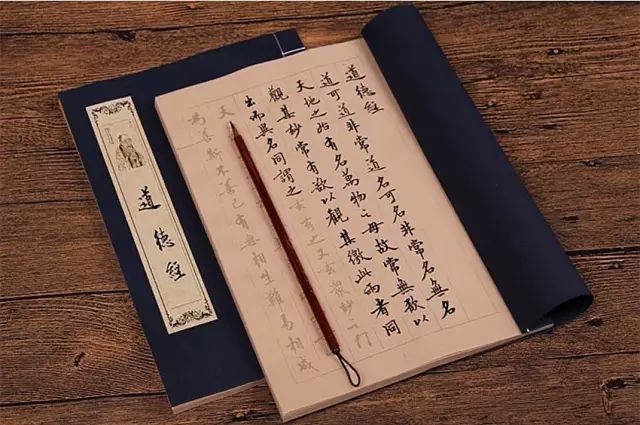 道德經
道可道非常道名可名非常名無名
天地之始有名萬物之母故常無欲以
觀其妙常有欲以觀其徼此兩者同
出而異名同謂之玄玄之又玄眾妙之門
天
為善斯不善已有無相生難易相成
道德經